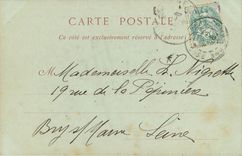 CARTE POSTALE
Ce côté est exclusivement réservé à l'adresse
M
Mademoiselle L. Mignotte
19 rue de la Pépinière
Bry s/ Marne Seine